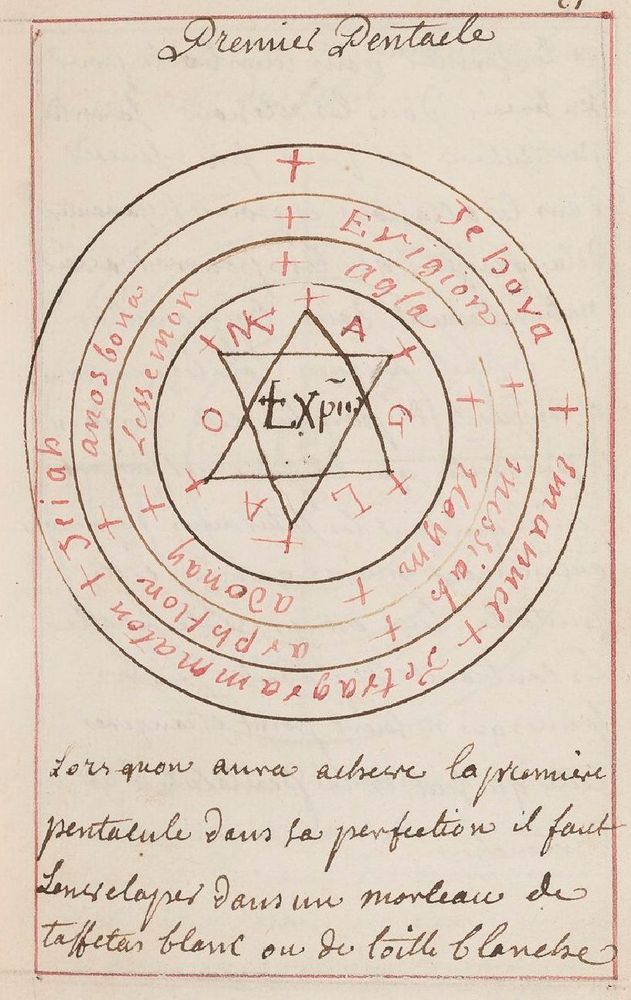 Premier Pentacle
+ Jehova + Emanuel + Tetragrammaton + Jeiah
+ Erigion + messiah + arphtion + anosbona
+ agla + Eloym + adonay + Lessemon
+ A + G + L + A + O +
Lors quon aura acheve la premiere
pentacule dans sa perfection il faut
Lenvelaper dans un morceau de
taffetas blanc ou de toille blanche